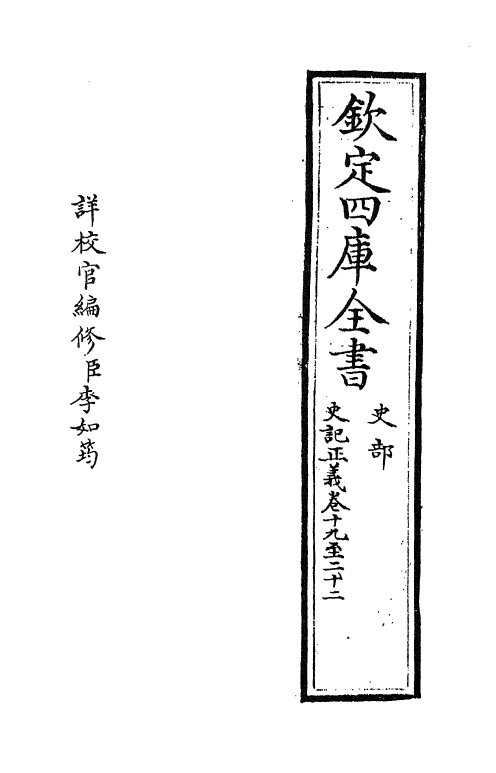 欽定四庫全書
史部
史記正義卷十九至二十二
詳校官編修臣李如筠